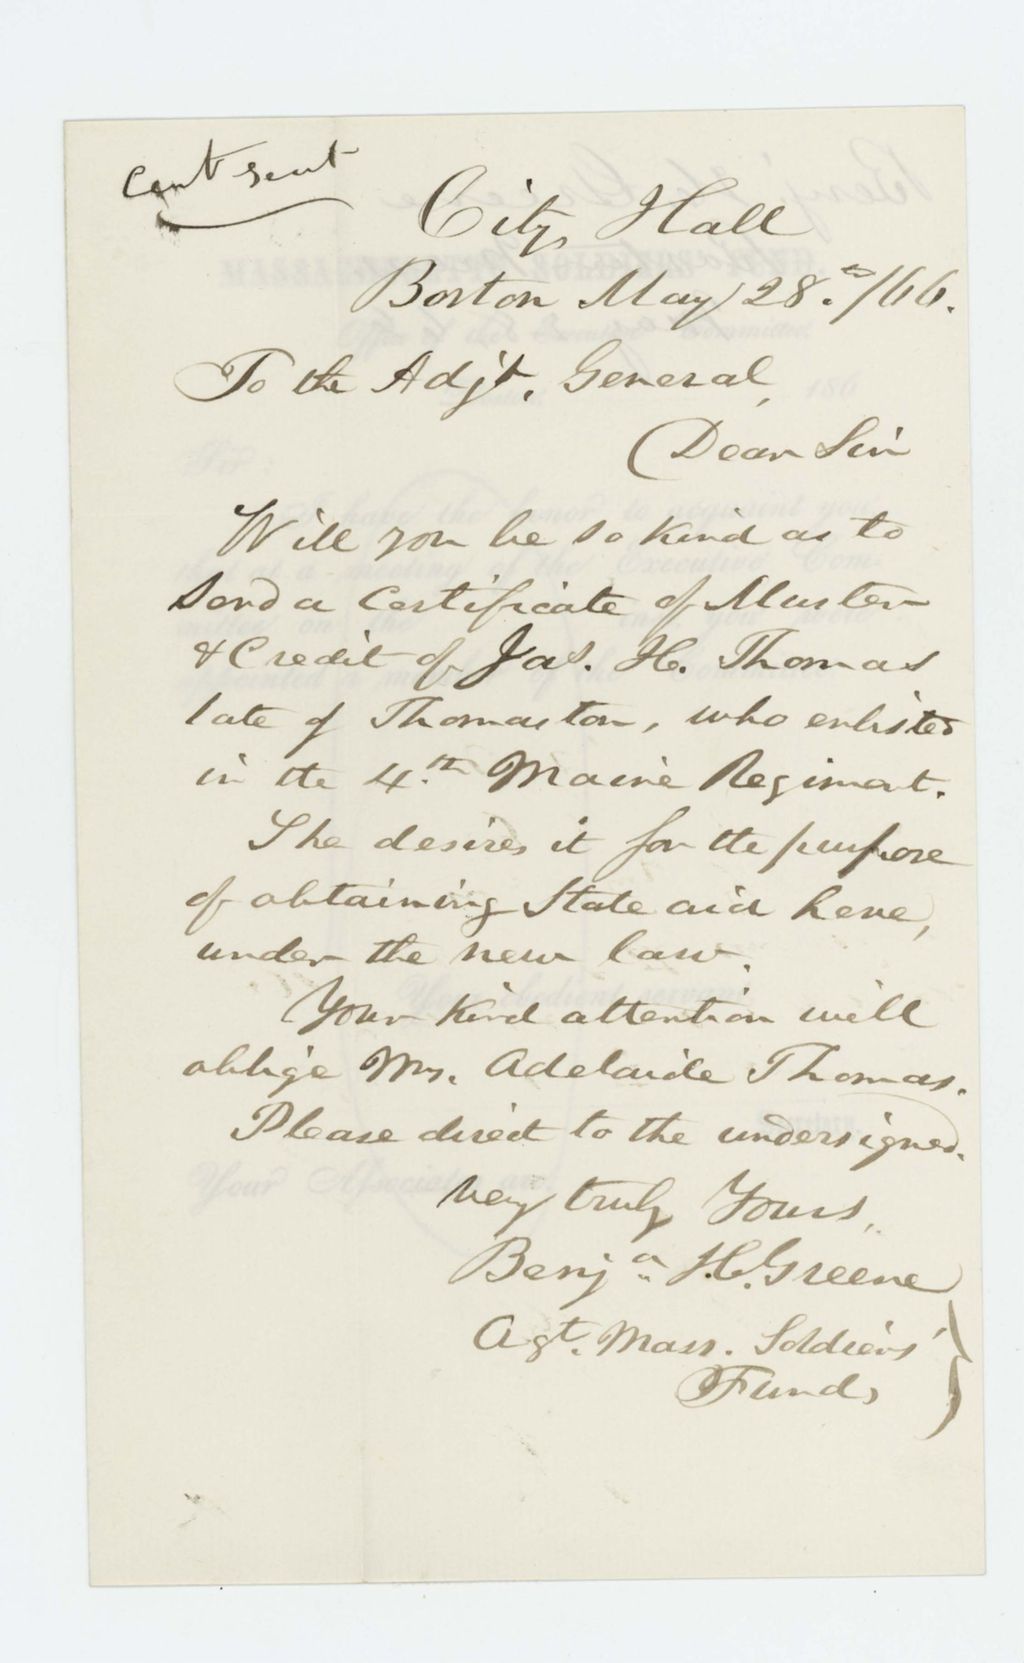 Cert sent
City Hall
Boston May 28.th /66.
To the Adj't. General,
Dear Sir
Will you be so kind as to
send a Certificate of Muster
& Credit of Jas. H. Thomas
late of Thomaston, who enlisted
in the 4.th Maine Regiment.
She desires it for the purpose
of obtaining State aid here,
under the new law.
Your kind attention will
oblige Mrs. Adelaide Thomas.
Please direct to the undersigned.
Very truly Yours,
Benj.a H. Greene
Agt. Mass. Soldiers'
Fund